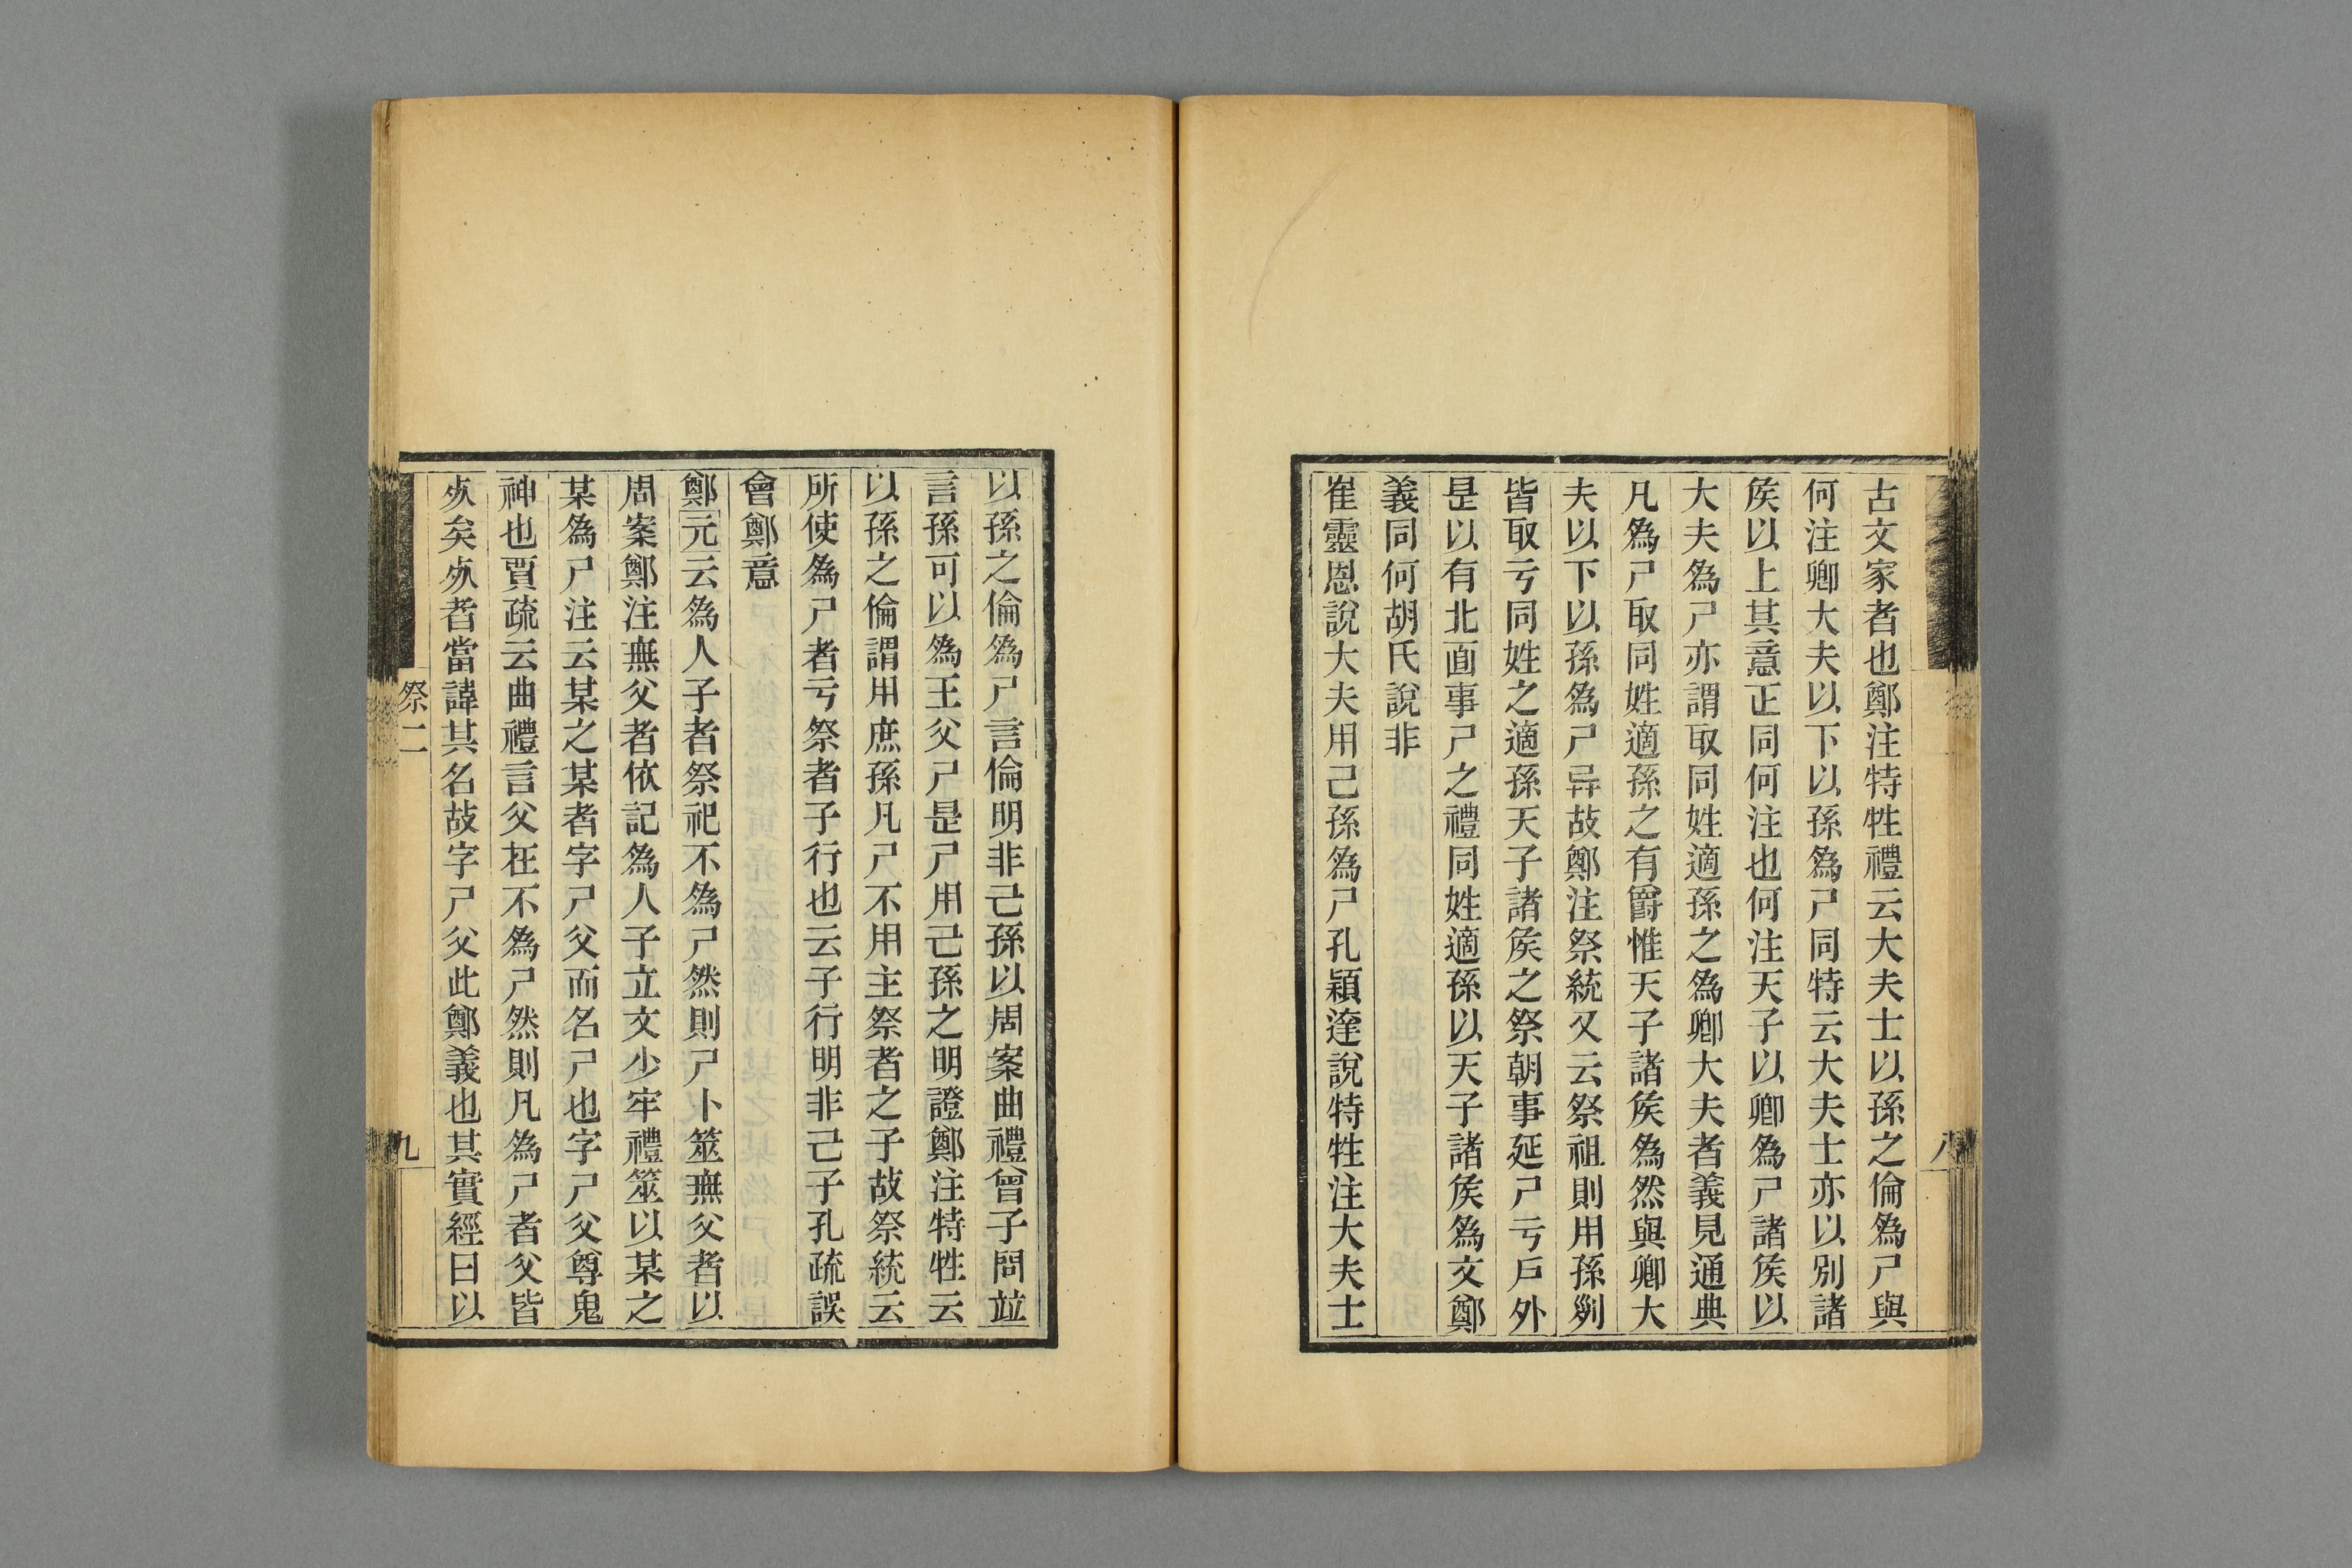 古文家者也鄭注特牲禮云大夫士以孫之倫爲尸與
何注卿大夫以下以孫爲尸同特云大夫士亦以別諸
矦以上其意正同何注也何注天子以卿爲尸諸矦以
大夫爲尸亦謂取同姓適孫之爲卿大夫者義見通典
凡爲尸取同姓適孫之有爵惟天子諸矦爲然與卿大
夫以下以孫爲尸异故鄭注祭統又云祭祖則用孫列
皆取亏同姓之適孫天子諸矦之祭朝事延尸亏戶外
是以有北面事尸之禮同姓適孫以天子諸矦爲文鄭
義同何胡氏說非
崔靈恩說大夫用己孫爲尸孔穎達說特牲注大夫士
八
以孫之倫爲尸言倫明非己孫以周案曲禮曾子問竝
言孫可以爲王父尸是尸用己孫之明證鄭注特牲云
以孫之倫謂用庶孫凡尸不用主祭者之子故祭統云
所使爲尸者亏祭者子行也云子行明非己子孔疏誤
會鄭意
鄭元云爲人子者祭祀不爲尸然則尸卜筮無父者以
周案鄭注無父者依記爲人子立文少牢禮筮以某之
某爲尸注云某之某者字尸父而名尸也字尸父尊鬼
神也賈疏云曲禮言父在不爲尸然則凡爲尸者父皆
𣦸矣𣦸者當諱其名故字尸父此鄭義也其實經曰以
祭二
九